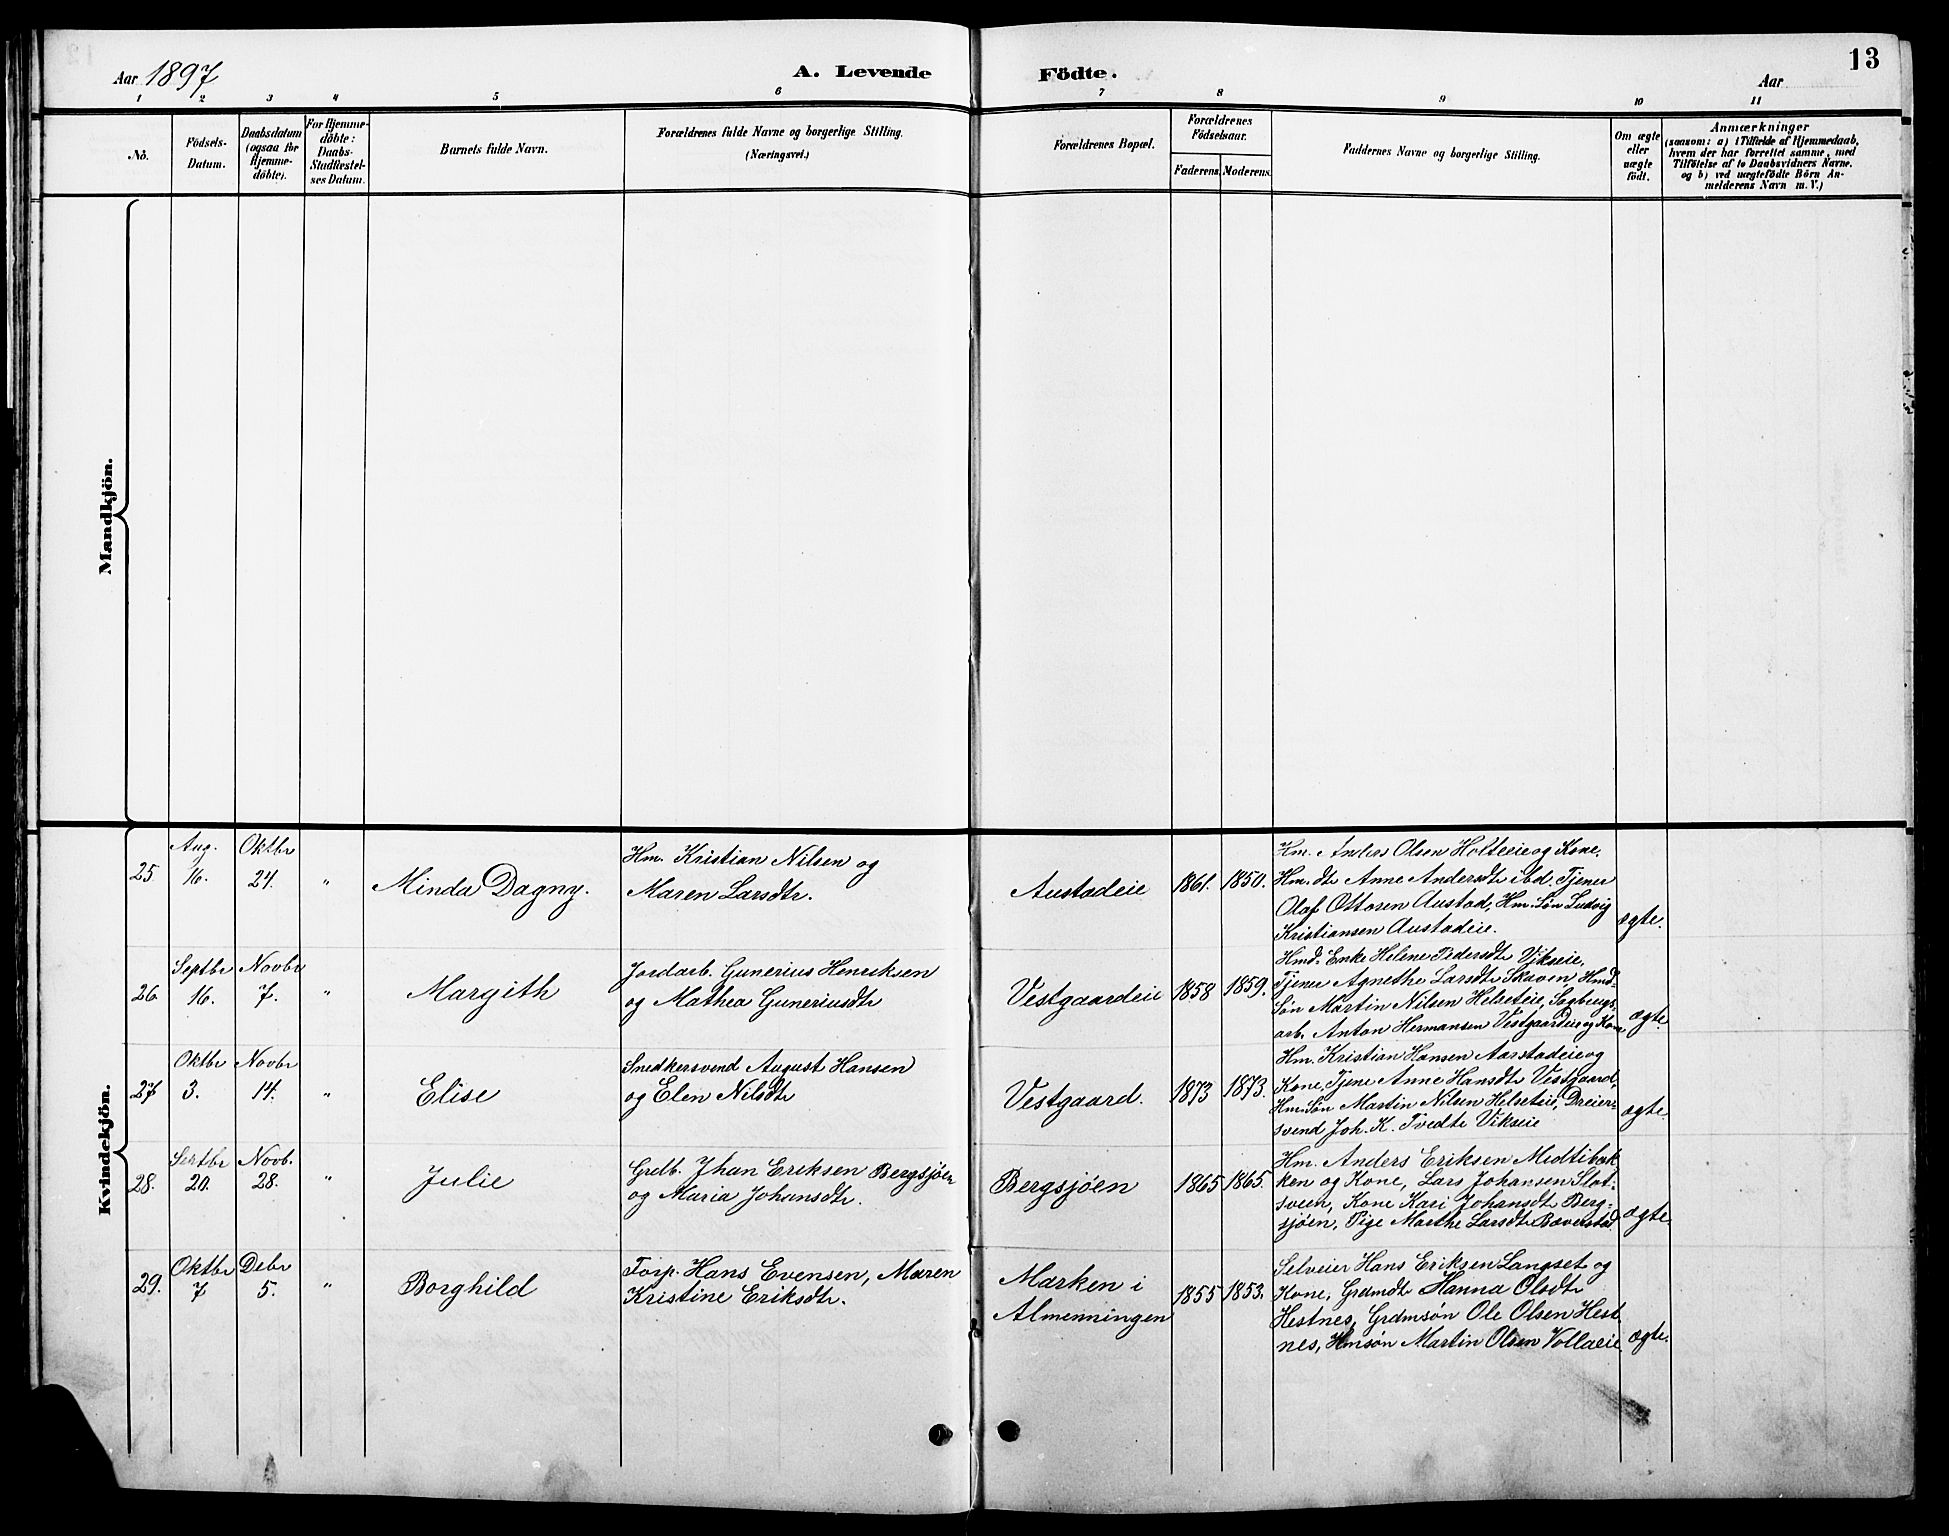 Aar 1897
A. Levende Födte.
Aar
13
1 2 3 4 5 6 7 8 9 10 11
No.
Födsels-
Datum.
Daabsdatum
(ogsaa for
Hjemme-
döbte).
For Hjemme-
döbte:
Daabs-
Stadfæstel-
ses Datum.
Barnets fulde Navn.
Forældrenes fulde Navne og borgerlige Stilling.
(Næringsvei.)
Forældrenes Bopæl.
Forældrenes
Födselsaar.
Faderens.
Moderens.
Faddernes Navne og borgerlige Stilling.
Om ægte
eller
uægte
födt.
Anmærkninger
(saasom: a) i Tilfælde af Hjemmedaab,
hvem der har forrettet samme, med
Tilföielse af to Daabsvidners Navne.
og b) ved uægtefödte Börn An-
melderens Navn m. V.)
Mandkjön.
Kvindekjön.
25
Aug.
16.
Oktbr
24.
"
Minda Dagny.
Hm. Kristian Nilsen og
Maren Larsdtr.
Austadeie
1861.
1850.
Hm. Anders Olsen Holteeie og Kone,
Hm. dtr Anne Andersdtr ibd. Tjener
Olaf Ottosen Austad, Hm. Søn Ludvig
Kristiansen Austadeie.
ægte.
26.
Septbr
16.
Novbr
7.
"
Margith
Jordarb. Gunerius Henriksen
og Mathea Guneriusdtr
Vestgaardeie
1858
1859.
Hmd. Enke Helene Pedersdtr Vikseie,
Tjener Agnethe Larsdtr Skaven, Hmd.
Søn Martin Nilsen Helseteie, Sagbrugs
arb. Anton Hermansen Vestgaardeie og Kone
ægte
27
Oktbr
3.
Novbr
14.
"
Elise
Snedkersvend August Hansen
og Elen Nilsdtr
Vestgaard.
1873
1873.
Hm. Kristian Hansen Aarstadeie og
Kone, Tjene Anne Hansdtr Vestgaard,
Hm. Søn Martin Nilsen Helseteie, Dreier-
svend Joh. K. Tvedte Vikseie
ægte.
28.
Septbr
20.
Novb.
28.
"
Julie
Grdb. Jhan Eriksen Bergsjøen
og Maria Johansdtr.
Bergsjøen
1865
1865.
Hm. Anders Eriksen Midtibak
ken og Kone, Lars Johansen Slot-
sveen, Kone Kari Johansdtr Berg-
sjøen, Pige Marthe Larsdtr Bæverstad
ægte.
29.
Oktbr
7
Debr
5.
"
Borghild
Torp. Hans Evensen, Maren
Kristine Eriksdtr.
Marken i
Almenningen
1855
1853.
Selveier Hans Eriksen Langset og
Kone, Grdmdtr Hanna Olsdtr
Hestnes, Grdmsøn Ole Olsen Hest
nes, Hmsøn Martin Olsen Vollaeie
ægte.